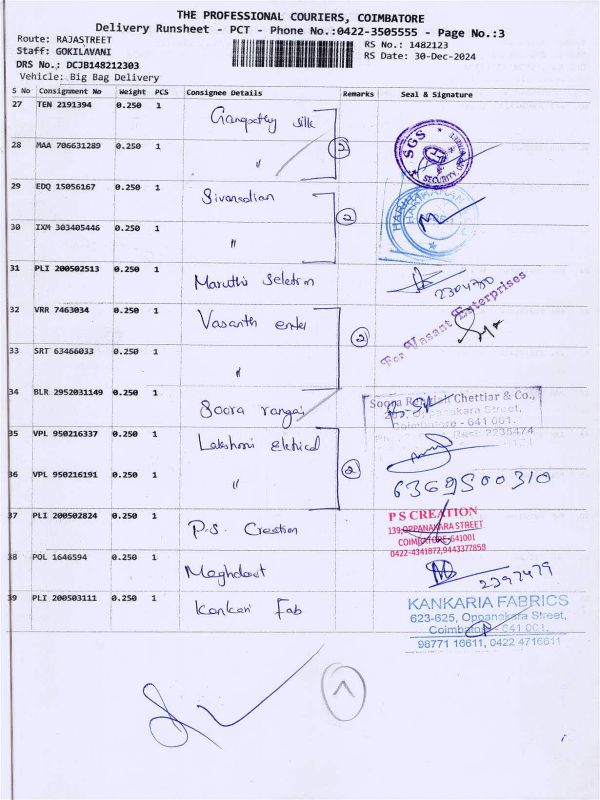 THE PROFESSIONAL COURIERS, COIMBATORE
Delivery Runsheet - PCT - Phone No.:0422-3505555 - Page No.:3
Route: RAJASTREET
Staff: GOKILAVANI
DRS No.: DCJB148212303
Vehicle: Big Bag Delivery
RS No.: 1482123
RS Date: 30-Dec-2024
S No Consignment No Weight PCS Consignee Details Remarks Seal & Signature
27 TEN 2191394 0.250 1 Ganpathy silk
28 MAA 706631289 0.250 1 " 2
SGS
SECURITY
29 EDQ 15056167 0.250 1 Sivansalian
30 IXM 303405446 0.250 1 " 2
31 PLI 200502513 0.250 1 Maruthi Seletion
2304780
32 VRR 7463034 0.250 1 Vasanth enter
For Vasant Enterprises
33 SRT 63466033 0.250 1 " 2
34 BLR 2952031149 0.250 1 Soora rangai
Chettiar & Co.,
Oppanakara Street,
Coimbatore - 641 001.
2235474
35 VPL 950216337 0.250 1 Lakshmi Eletrical
36 VPL 950216191 0.250 1 " 2
6369500310
37 PLI 200502824 0.250 1 P.S. Creation
P S CREATION
139,OPPANAKARA STREET
COIMBATORE-641001
0422-4341872,9443377858
38 POL 1646594 0.250 1 Meghdoot
2397479
39 PLI 200503111 0.250 1 Kankari Fab
KANKARIA FABRICS
623-625, Oppanakara Street,
Coimbatore - 641 001.
98771 16611, 0422 4716611